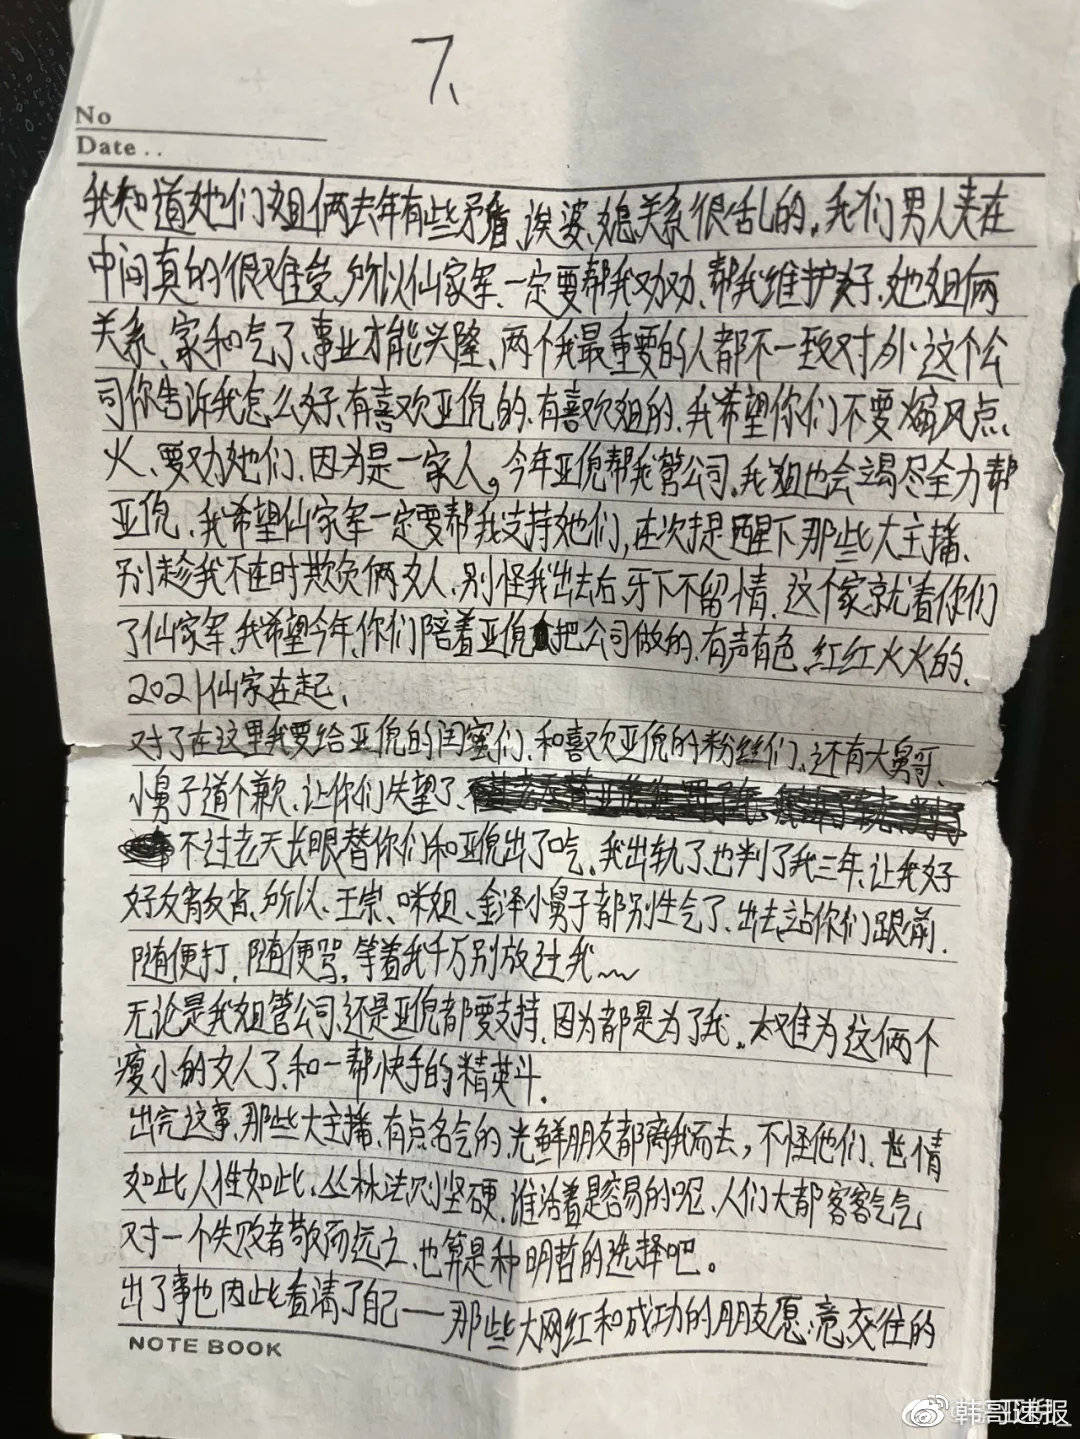 7、
No
Date . .
我知道她们姐俩去年有些矛盾、诶婆、媳关系很乱的。我们男人夹在
中间真的很难受、所以仙家军、一定要帮我劝劝、帮我维护好、她姐俩
关系、家和气了、事业才能兴隆、两个我最重要的人都不一致对外、这个公
司你告诉我怎么好、有喜欢亚倪的、有喜欢姐的、我希望你们不要煽风点
火、要劝她们、因为是一家人。今年亚倪帮我管公司。我姐也会竭尽全力帮
亚倪、我希望仙家军一定要帮我支持她们，在次提醒下那些大主播、
别趁我不在时欺负俩女人、别怪我出去后、牙下不留情、这个家就看你们
了仙家军、我希望今年、你们陪着亚倪把公司做的、有声有色、红红火火的、
2021仙家在起、
对了在这里我要给亚倪的闺蜜们、和喜欢亚倪的粉丝们、还有大舅哥、
小舅子道个歉、让你们失望了、
不过老天长眼替你们和亚倪出了气。我出轨了、也判了我三年、让我好
好反省反省、所以、王崇、咪姐、金泽小舅子都别生气了、出去、站你们跟前、
随便打，随便骂，等着我千万别放过我～
无论是我姐管公司、还是亚倪都要支持、因为都是为了我。太难为这俩个
瘦小的女人了、和一帮快手的精英斗.
出完这事、那些大主播、有点名气的、光鲜朋友都离我而去，不怪他们、世情
如此人性如此、丛林法则坚硬、谁活着是容易的呢、人们大都客客气气
对一个失败者敬而远之、也算是种明哲的选择吧。
出了事也因此看清了自己——那些大网红和成功的朋友愿意交往的
NOTE BOOK
韩哥速报